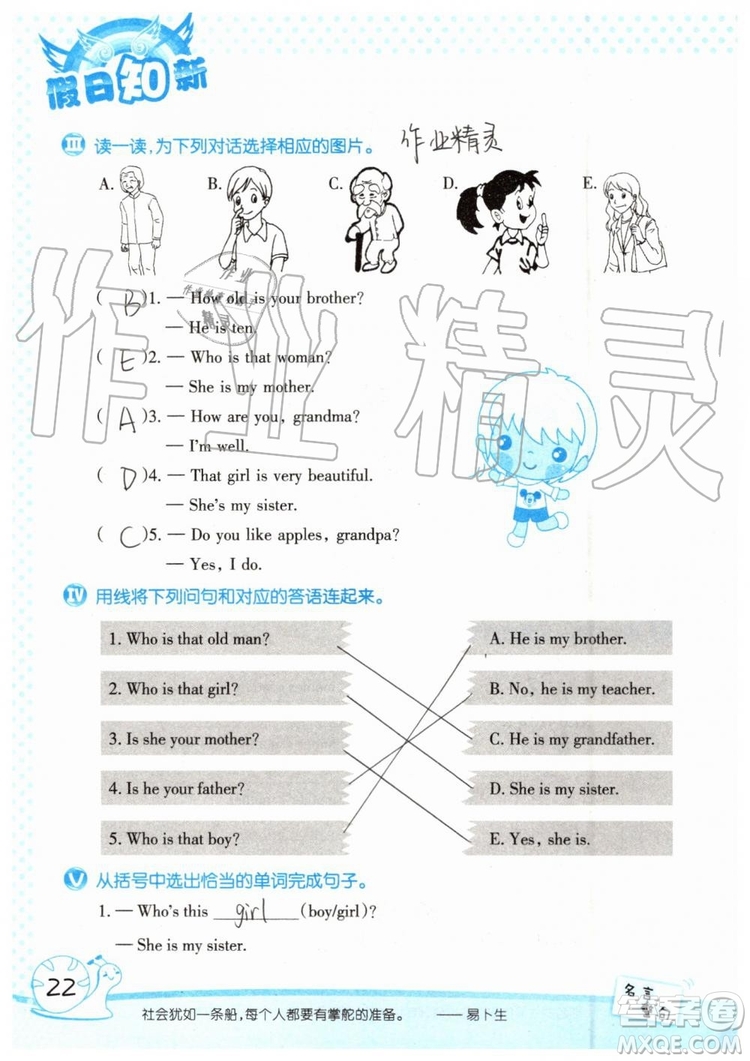 假日知新
III 读一读,为下列对话选择相应的图片。 作业精灵
A. B. C. D. E.
( B )1. — How old is your brother?
— He is ten.
( E )2. — Who is that woman?
— She is my mother.
( A )3. — How are you, grandma?
— I'm well.
( D )4. — That girl is very beautiful.
— She's my sister.
( C )5. — Do you like apples, grandpa?
— Yes, I do.
作业精灵
IV 用线将下列问句和对应的答语连起来。
1. Who is that old man? A. He is my brother.
2. Who is that girl? B. No, he is my teacher.
3. Is she your mother? C. He is my grandfather.
4. Is he your father? D. She is my sister.
5. Who is that boy? E. Yes, she is.
V 从括号中选出恰当的单词完成句子。
1. — Who's this girl (boy/girl)?
— She is my sister.
22
社会犹如一条船,每个人都要有掌舵的准备。 ——易卜生
名言警句
答案圈
MXQE.COM